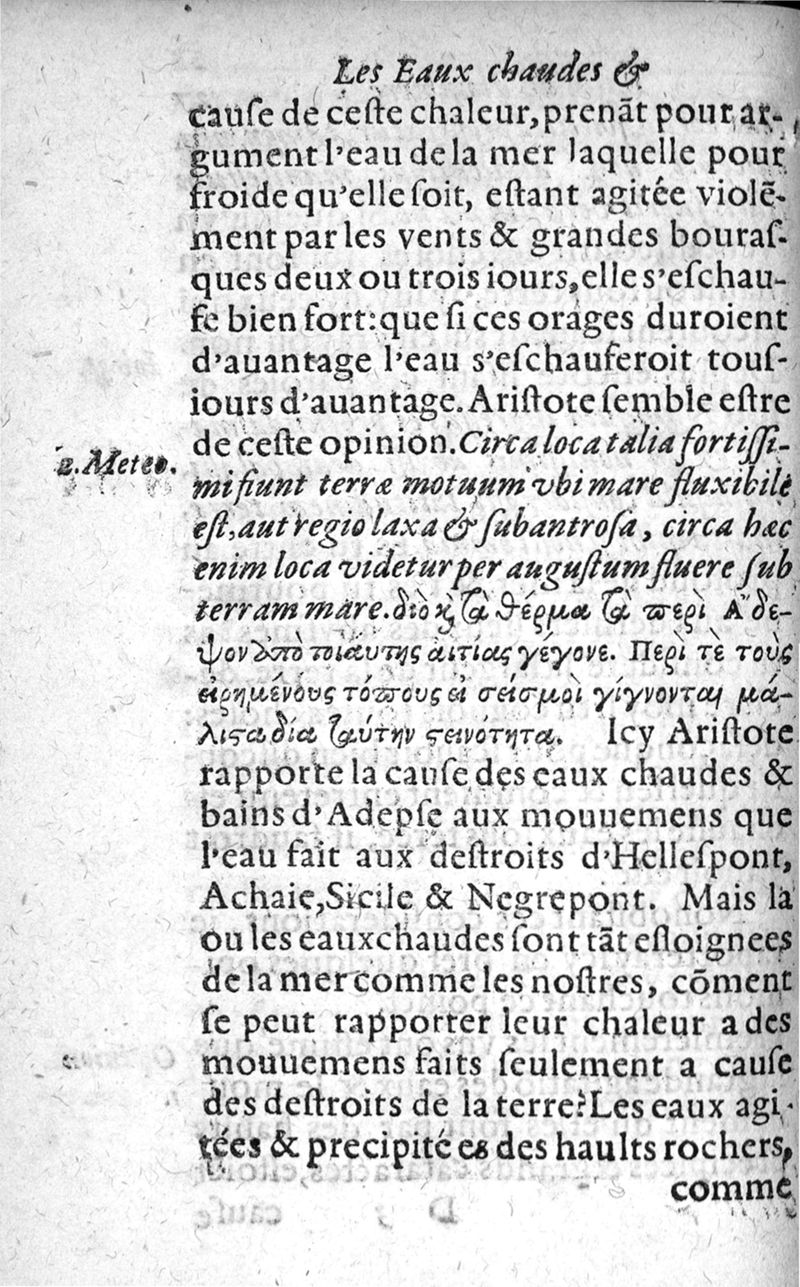 Les Eaux chaudes &
cauſe de ceſte chaleur, prenãt pour ar-
gument l'eau de la mer laquelle pour
froide qu'elle ſoit, eſtant agitée violẽ-
ment par les vents & grandes bouraſ-
ques deux ou trois iours, elle s'eſchau-
fe bien fort: que ſi ces orages duroient
d'auantage l'eau s'eſchauferoit touſ-
iours d'auantage. Ariſtote ſemble eſtre
de ceſte opinion. Circa loca talia fortiſſi-
2. Meteo.
mi fiunt terræ motuum vbi mare fluxibile
eſt, aut regio laxa & ſubantroſa, circa hæc
enim loca videtur per auguſtum fluere ſub
terram mare. διὸ ϗ τὰ θέρμα τὰ περὶ Ἀ᾽δε-
ψον ἀπὸ τοιαύτης ἀιτίας γέγονε. Περὶ τὲ τοὺς
εἰρημένους τόπους ει σεισμοὶ γίγνονται μά-
λιϛα δία ταύτην ϛεινότητα. Icy Ariſtote
rapporte la cauſe des eaux chaudes &
bains d'Adepſe aux mouuemens que
l'eau fait aux deſtroits d'Helleſpont,
Achaie, Sicile & Negrepont. Mais la
ou les eaux chaudes ſont tãt eſloignees
de la mer comme les noſtres, cõment
ſe peut rapporter leur chaleur a des
mouuemens faits ſeulement a cauſe
des deſtroits de la terre? Les eaux agi-
tées & precipitées des haults rochers,
comme